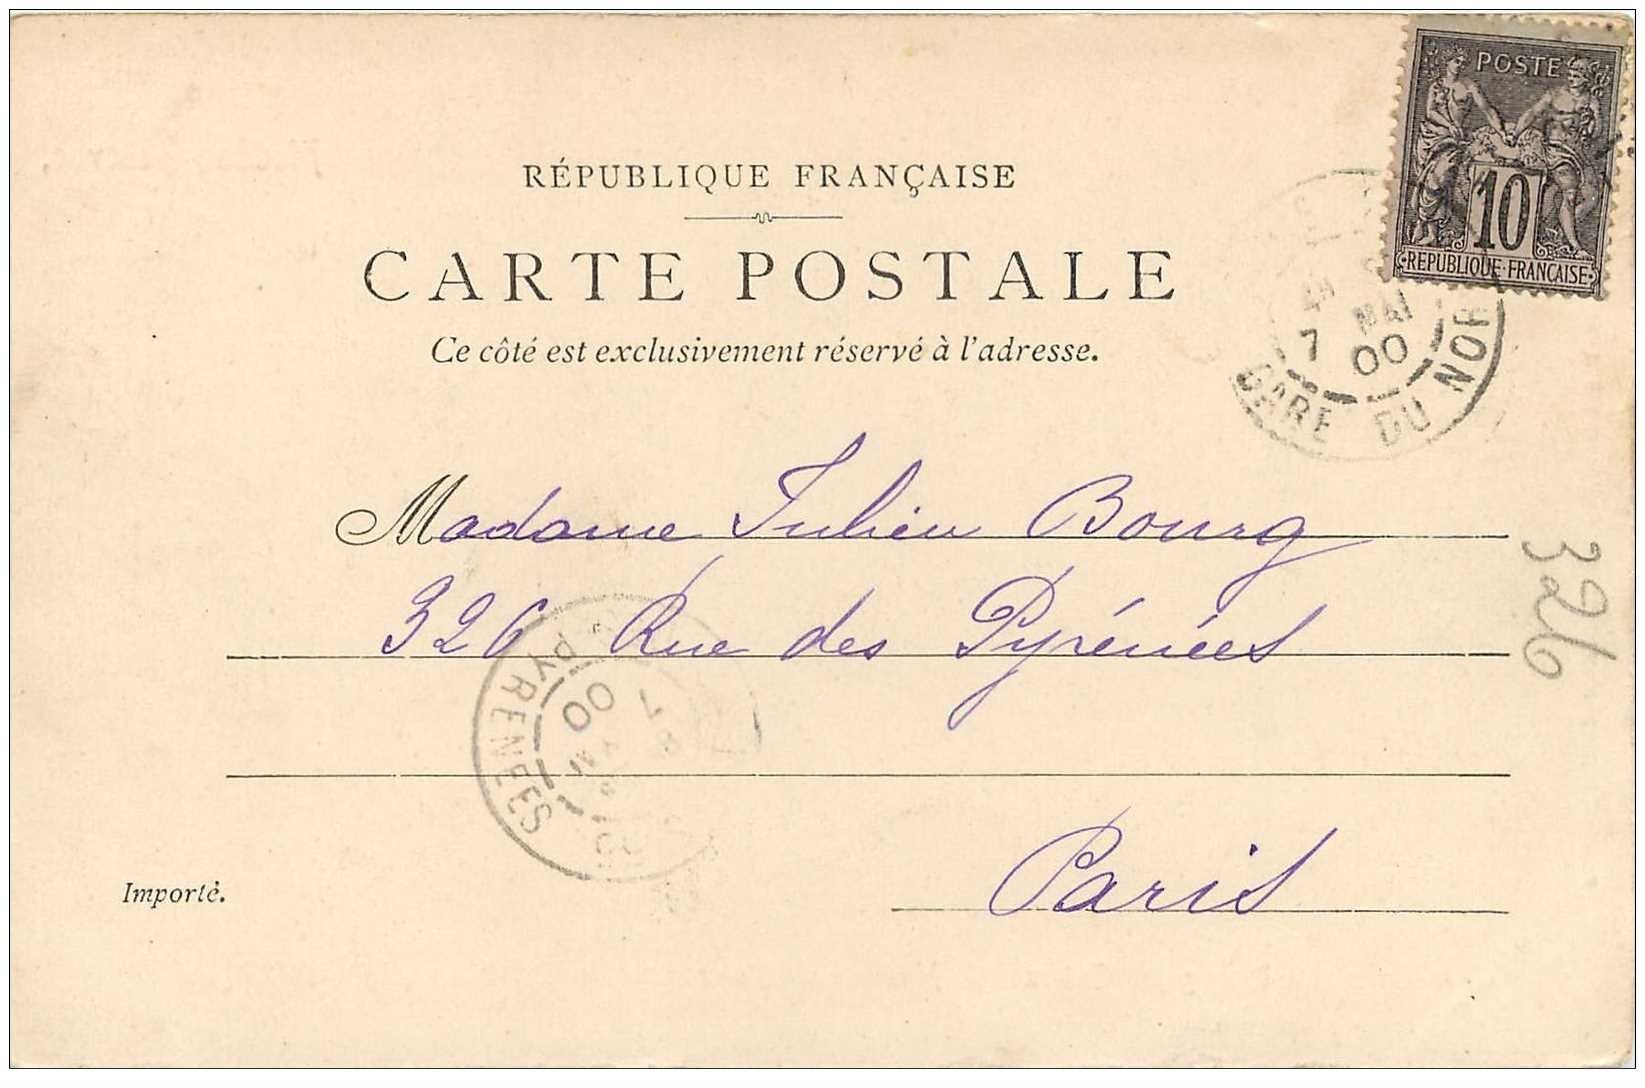 POSTE
10
REPUBLIQUE FRANÇAISE
RÉPUBLIQUE FRANÇAISE
CARTE POSTALE
Ce côté est exclusivement réservé à l'adresse.
7 MAI 00
GARE DU NOR
Madame Julien Bourg
326 Rue des Pyrénées
326
PYRENEES
00
Paris
Importé.